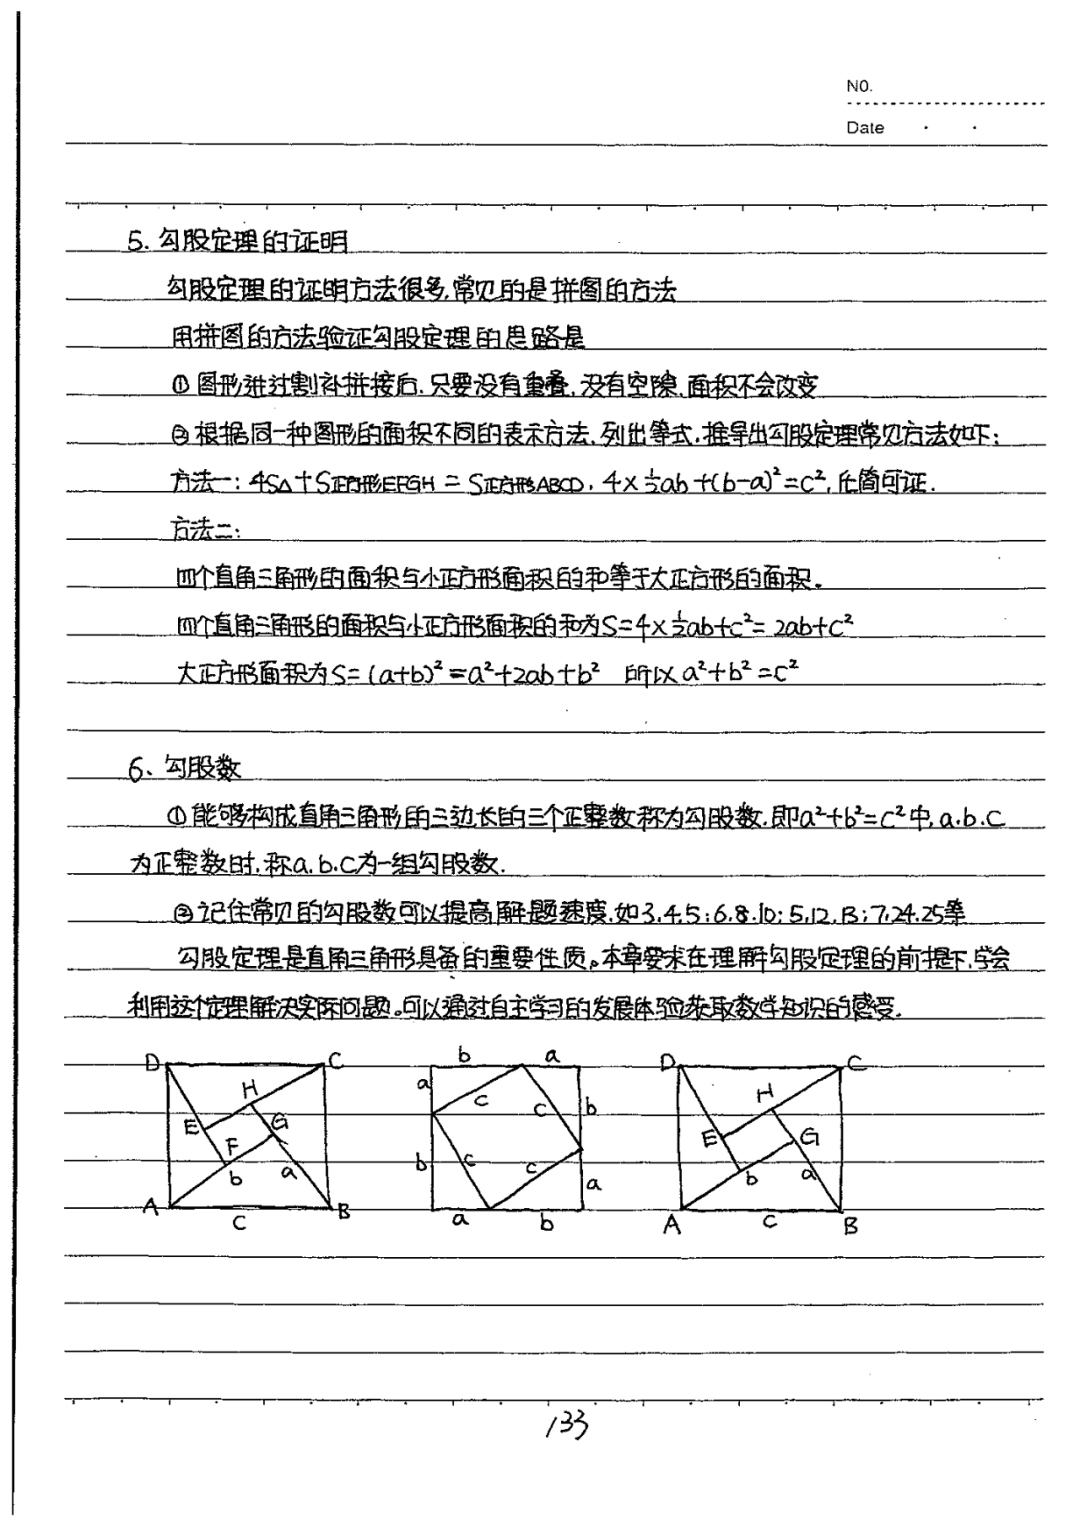 NO.
Date
5. 勾股定理的证明
勾股定理的证明方法很多,常见的是拼图的方法
用拼图的方法验证勾股定理的思路是
① 图形进过割补拼接后,只要没有重叠,没有空隙,面积不会改变
② 根据同一种图形的面积不同的表示方法,列出等式,推导出勾股定理常见方法如下:
方法一: 4S△+S正方形EFGH=S正方形ABCD, 4×½ab+(b-a)²=c², 化简可证.
方法二:
四个直角三角形的面积与小正方形面积的和等于大正方形的面积。
四个直角三角形的面积与小正方形面积的和为S=4×½ab+c²=2ab+c²
大正方形面积为S=(a+b)²=a²+2ab+b² 所以a²+b²=c²
6、勾股数
① 能够构成直角三角形的三边长的三个正整数称为勾股数,即a²+b²=c²中,a.b.c
为正整数时,称a.b.c为一组勾股数.
② 记住常见的勾股数可以提高解题速度,如3.4.5;6.8.10;5.12.13;7.24.25等
勾股定理是直角三角形具备的重要性质。本章要求在理解勾股定理的前提下,学会
利用这个定理解决实际问题。可以通过自主学习的发展体验获取数学知识的感受.
D C b a D C
H a c c b H
E G F E G
b a b c c a b a
A c B a b A c B
133